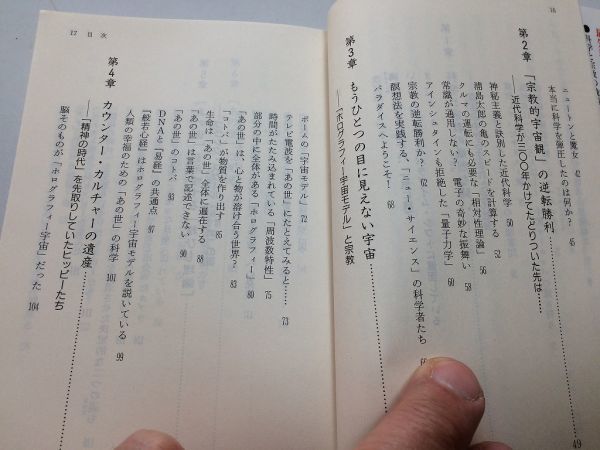 16
ニュートンと魔女 42
本当に科学を弾圧したのは何か? 45
第2章 「宗教的宇宙観」の逆転勝利
──近代科学が三〇〇年かけてたどりついた先は…… 49
神秘主義と訣別した近代科学 50
浦島太郎の亀のスピードを計算する 52
クルマの運転にも必要な「相対性理論」 56
常識が通用しない? 電子の奇妙な振舞い 58
アインシュタインも拒絶した「量子力学」 60
宗教の逆転勝利か? 62
瞑想法を実践する、「ニュー・サイエンス」の科学者たち
パラダイスへようこそ! 68
第3章 もうひとつの目に見えない宇宙
──「ホログラフィー宇宙モデル」と宗教
17 目次
ボームの「宇宙モデル」 72
テレビ電波を「あの世」にたとえてみると…… 73
時間がたたみ込まれている「周波数特性」 75
部分の中に全体がある「ホログラフィー」 80
「あの世」は、心と物が溶け合う世界? 83
「コトバ」が物質を作り出す 85
生命は「あの世」全体に遍在する 88
「あの世」は言葉で記述できない 90
「あの世」のコトバ 93
DNAと「易経」の共通点 97
『般若心経』はホログラフィー宇宙モデルを説いている 99
人類の幸福のための「あの世」の科学 101
第4章 カウンター・カルチャーの遺産
──「精神の時代」を先取りしていたヒッピーたち
脳そのものが「ホログラフィー宇宙」だった 104